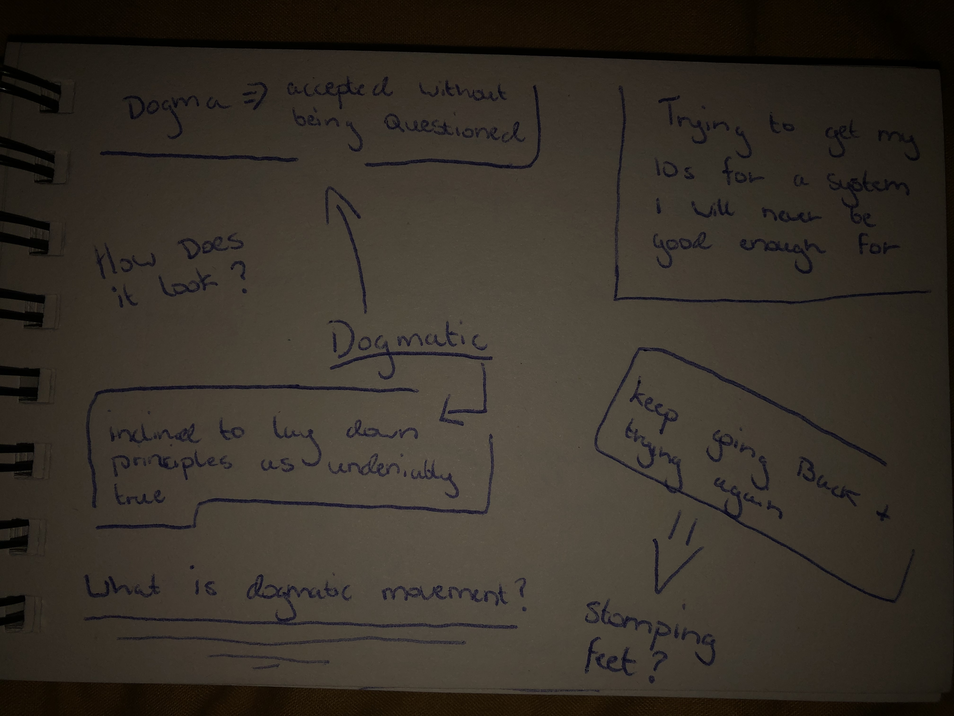 Dogma => accepted without
being Questioned
Trying to get my
10s for a system
i will never be
good enough for
How Does
it look?
Dogmatic
inclined to lay down
principles as undeniably
true
keep going Back +
trying again
What is dogmatic movement?
Stomping
feet?